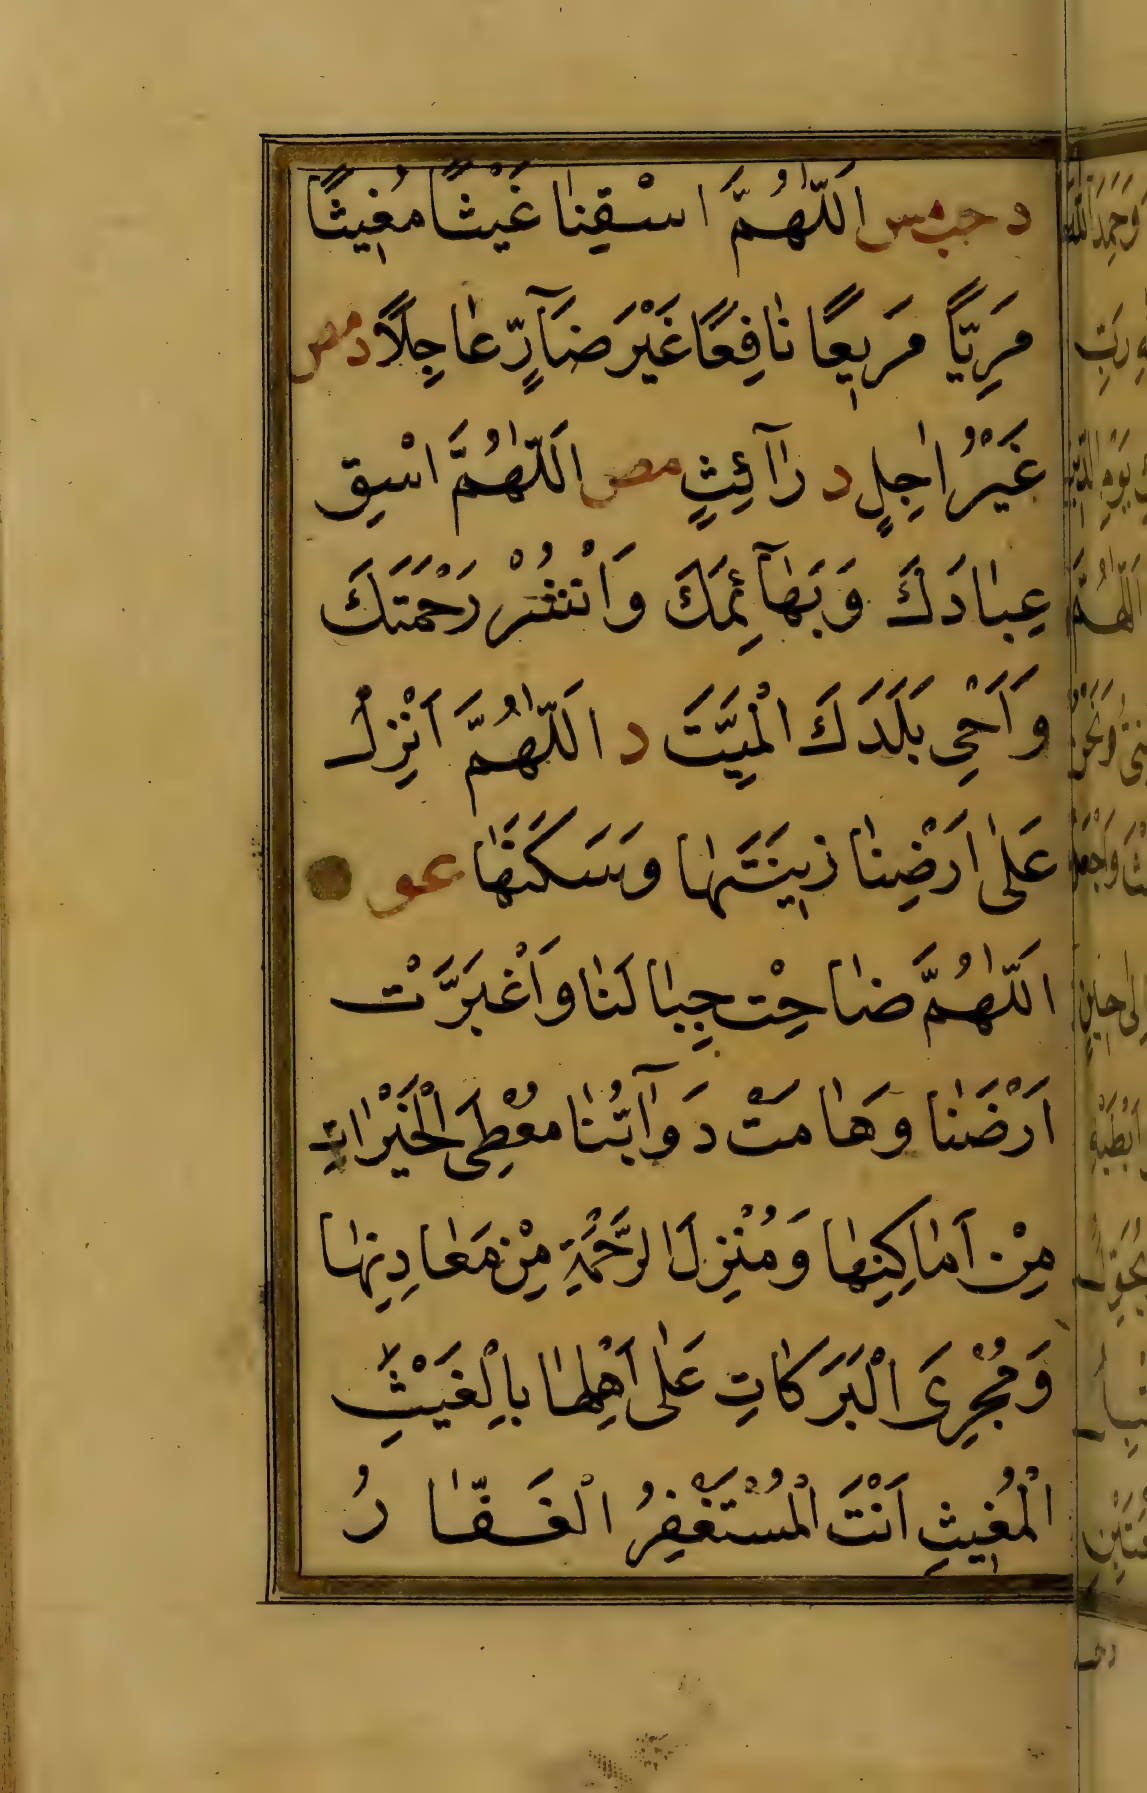 د حب مس اَللّٰهُمَّ اسْقِنَا غَيْثًا مُغِيثًا
مَرِيًّا مَرِيعًا نَافِعًا غَيْرَ ضَآرٍّ عَاجِلًا د مص
غَيْرُ اٰجِلٍ د رَآئِثٍ مص اَللّٰهُمَّ اسْقِ
عِبَادَكَ وَبَهَآئِمَكَ وَانْشُرْ رَحْمَتَكَ
وَاَحْىِ بَلَدَكَ الْمَيِّتَ د اَللّٰهُمَّ اَنْزِلْ
عَلٰى اَرْضِنَا زِينَتَهَا وَسَكَنَهَا عو
اَللّٰهُمَّ ضَاحَتْ جِبَالُنَا وَاغْبَرَّتْ
اَرْضُنَا وَهَامَتْ دَوَآبُّنَا مُعْطِىَ الْخَيْرَاتِ
مِنْ اَمَاكِنِهَا وَمُنْزِلَ الرَّحْمَةِ مِنْ مَعَادِنِهَا
وَمُجْرِىَ الْبَرَكَاتِ عَلٰى اَهْلِهَا بِالْغَيْثِ
الْمُغِيثِ اَنْتَ الْمُسْتَغْفَرُ الْغَفَّارُ